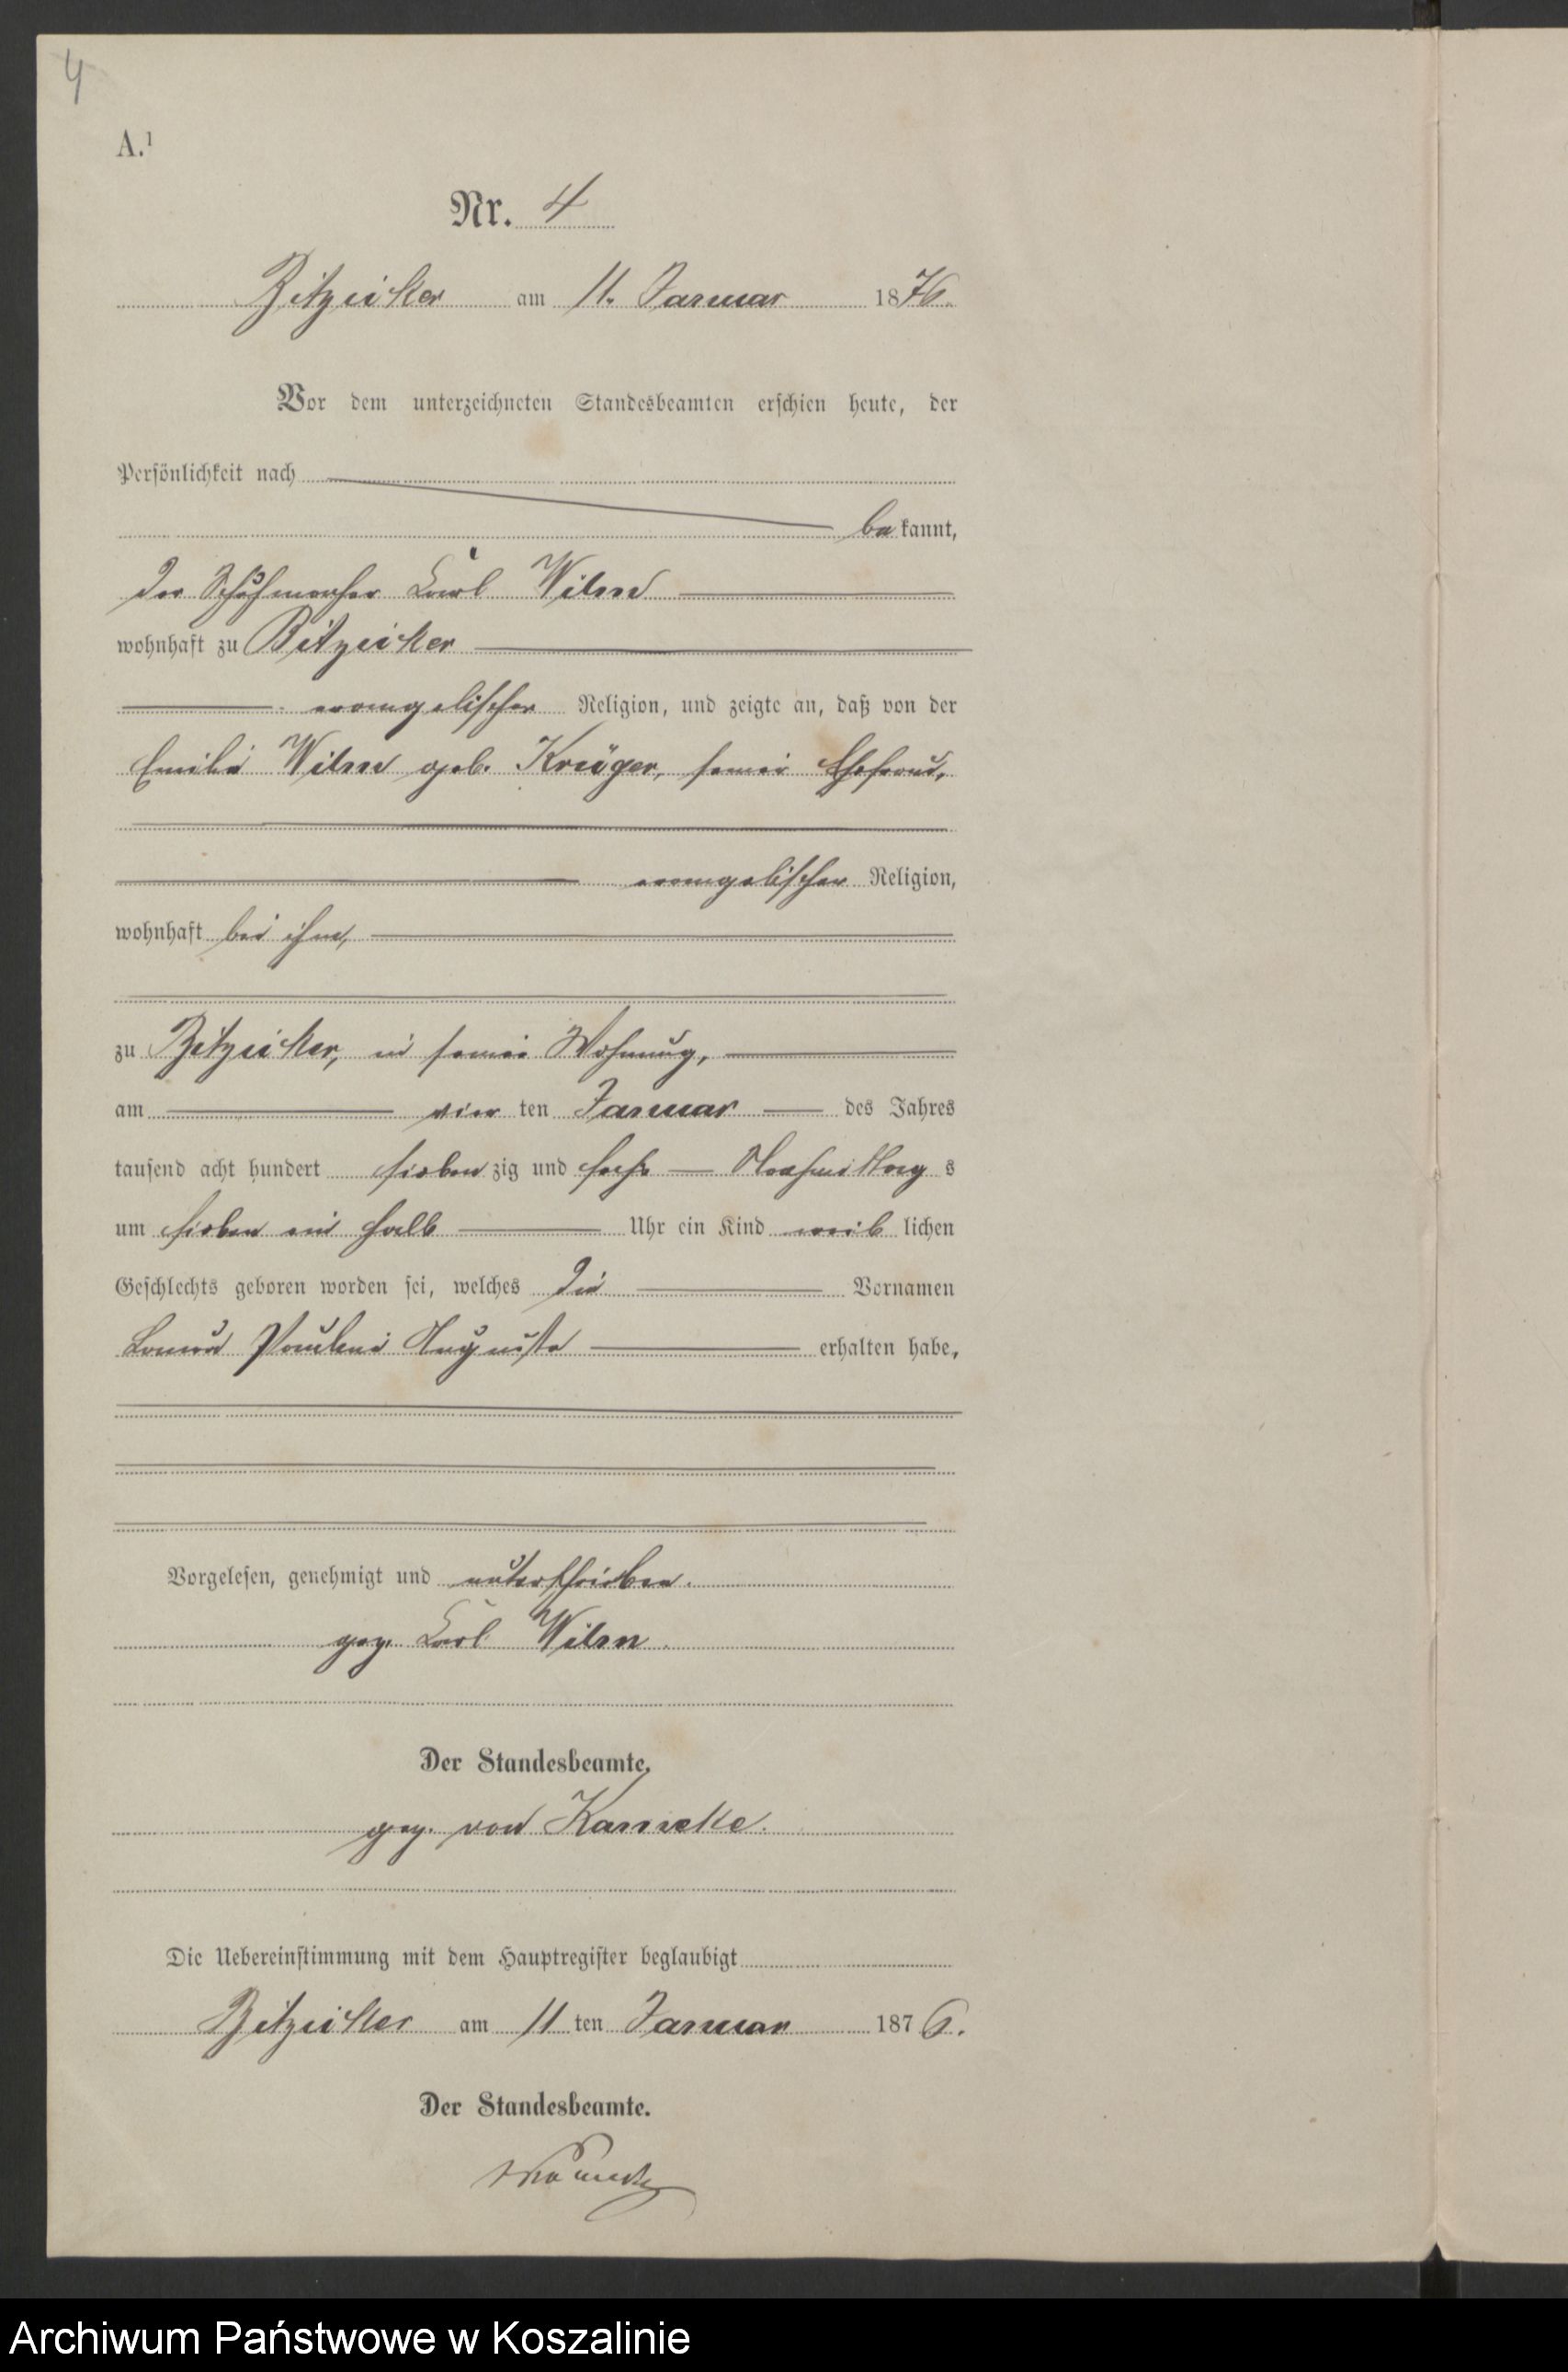 4
A.¹
Nr. 4
Bitziker am 11. Januar 1876.
Vor dem unterzeichneten Standesbeamten erschien heute, der
Persönlichkeit nach
bekannt,
der Schuhmacher Carl Wilm
wohnhaft zu Bitziker
evangelischer Religion, und zeigte an, daß von der
Emilie Wilm geb. Krüger, seiner Ehefrau,
evangelischer Religion,
wohnhaft bei ihm,
zu Bitziker, in seiner Wohnung,
am vier ten Januar des Jahres
tausend acht hundert sieben zig und sechs Nachmittag s
um sieben ein halb Uhr ein Kind weib lichen
Geschlechts geboren worden sei, welches die Vornamen
Pauline Auguste erhalten habe,
Vorgelesen, genehmigt und unterschrieben.
gez. Carl Wilm
Der Standesbeamte,
gez. von Kameke.
Die Uebereinstimmung mit dem Hauptregister beglaubigt
Bitziker am 11 ten Januar 1876.
Der Standesbeamte.
vKameke
Archiwum Państwowe w Koszalinie